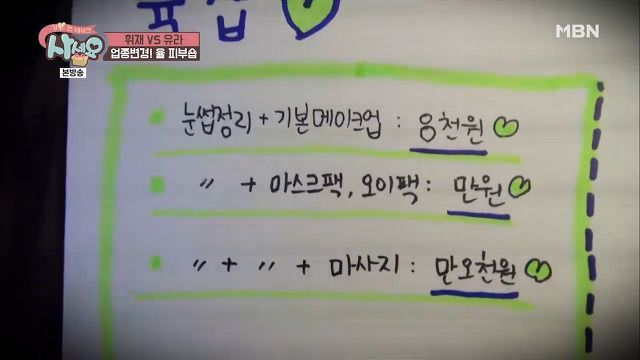 사세요
본방송
휘재 VS 유라
업종변경! 율 피부숍
MBN
율 숍
눈썹정리 + 기본메이크업 : 응천원
〃 + 마스크팩, 오이팩 : 만원
〃 + 〃 + 마사지 : 만오천원